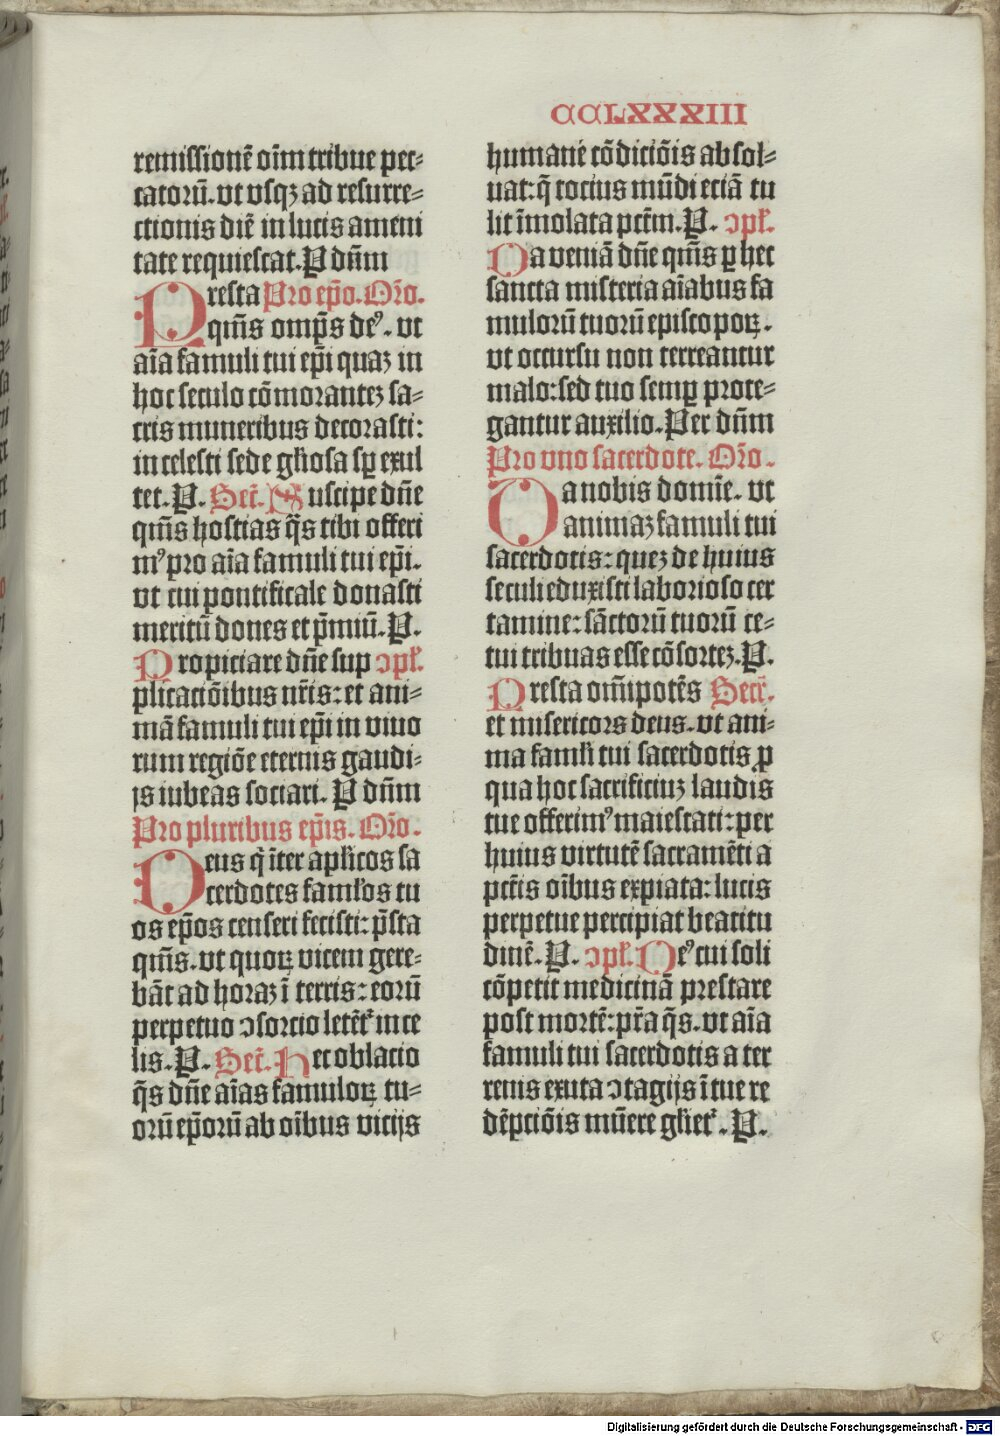 CCLXXXIII
remissionē oīm tribue pec⸗
catorū. vt vsqꝫ ad resurre⸗
ctionis diē in lucis ameni
tate requiescat. P dn̄m
Presta Pro ep̄o. Or̄o.
qum̄s omp̄s deꝰ. vt
aīa famuli tui ep̄i quaꝫ in
hoc seculo cōmoranteꝫ sa⸗
cris muneribus decorasti:
in celesti sede gl̄iosa sꝑ exul
tet. P. Secr̄. Suscipe dn̄e
qum̄s hostias q̄s tibi offeri
mꝰ pro aīa famuli tui ep̄i.
vt cui pontificale donasti
meritū dones et p̄miū. P.
Propiciare dn̄e sup ↄpl̄.
plicatiōibus nr̄is: et ani⸗
mā famuli tui ep̄i in viuo
rum regiōe eternis gaudi⸗
js iubeas sociari. P dn̄m
Pro pluribus ep̄is. Or̄o.
Deus q̄ īter apl̄icos sa
cerdotes faml̄os tu
os ep̄os censeri fecisti: p̄sta
qum̄s. vt quoꝝ vicem gere⸗
bāt ad horaꝫ ī terris: eorū
perpetuo ↄsorcio letēt᷑ in ce
lis. P. Secr̄. Hec oblacio
q̄s dn̄e aīas famuloꝝ tu⸗
orū ep̄orū ab oībus vicijs
humane cōdiciōis absol⸗
uat: q̄ tocius mūdi eciā tu
lit īmolata pctm̄. P. ↄpl̄.
Da veniā dn̄e qum̄s ꝑ hec
sancta misteria aīabus fa
mulorū tuorū episcopoꝝ.
vt occursu non terreantur
malo: sed tuo semꝑ prote⸗
gantur auxilio. Per dn̄m
Pro vno sacerdote. Or̄o.
Da nobis domīe. vt
animaꝫ famuli tui
sacerdotis: queꝫ de huius
seculi eduxisti laborioso cer
tamine: sāctorū tuorū ce⸗
tui tribuas esse cōsorteꝫ. P.
Presta om̄ipotēs Secr̄.
et misericors deus. vt ani⸗
ma faml̄i tui sacerdotis ꝓ
qua hoc sacrificiuꝫ laudis
tue offerimꝰ maiestati: per
huius virtutē sacramēti a
pctīs oībus expiata: lucis
perpetue percipiat beatitu
dinē. P. ↄpl̄. Deꝰ cui soli
cōpetit medicinā prestare
post mortē: pr̄a q̄s. vt aīa
famuli tui sacerdotis a ter
renis exuta ↄtagijs ī tue re
dēpciōis mūere gl̄iet᷑. P.
Digitalisierung gefördert durch die Deutsche Forschungsgemeinschaft - DFG